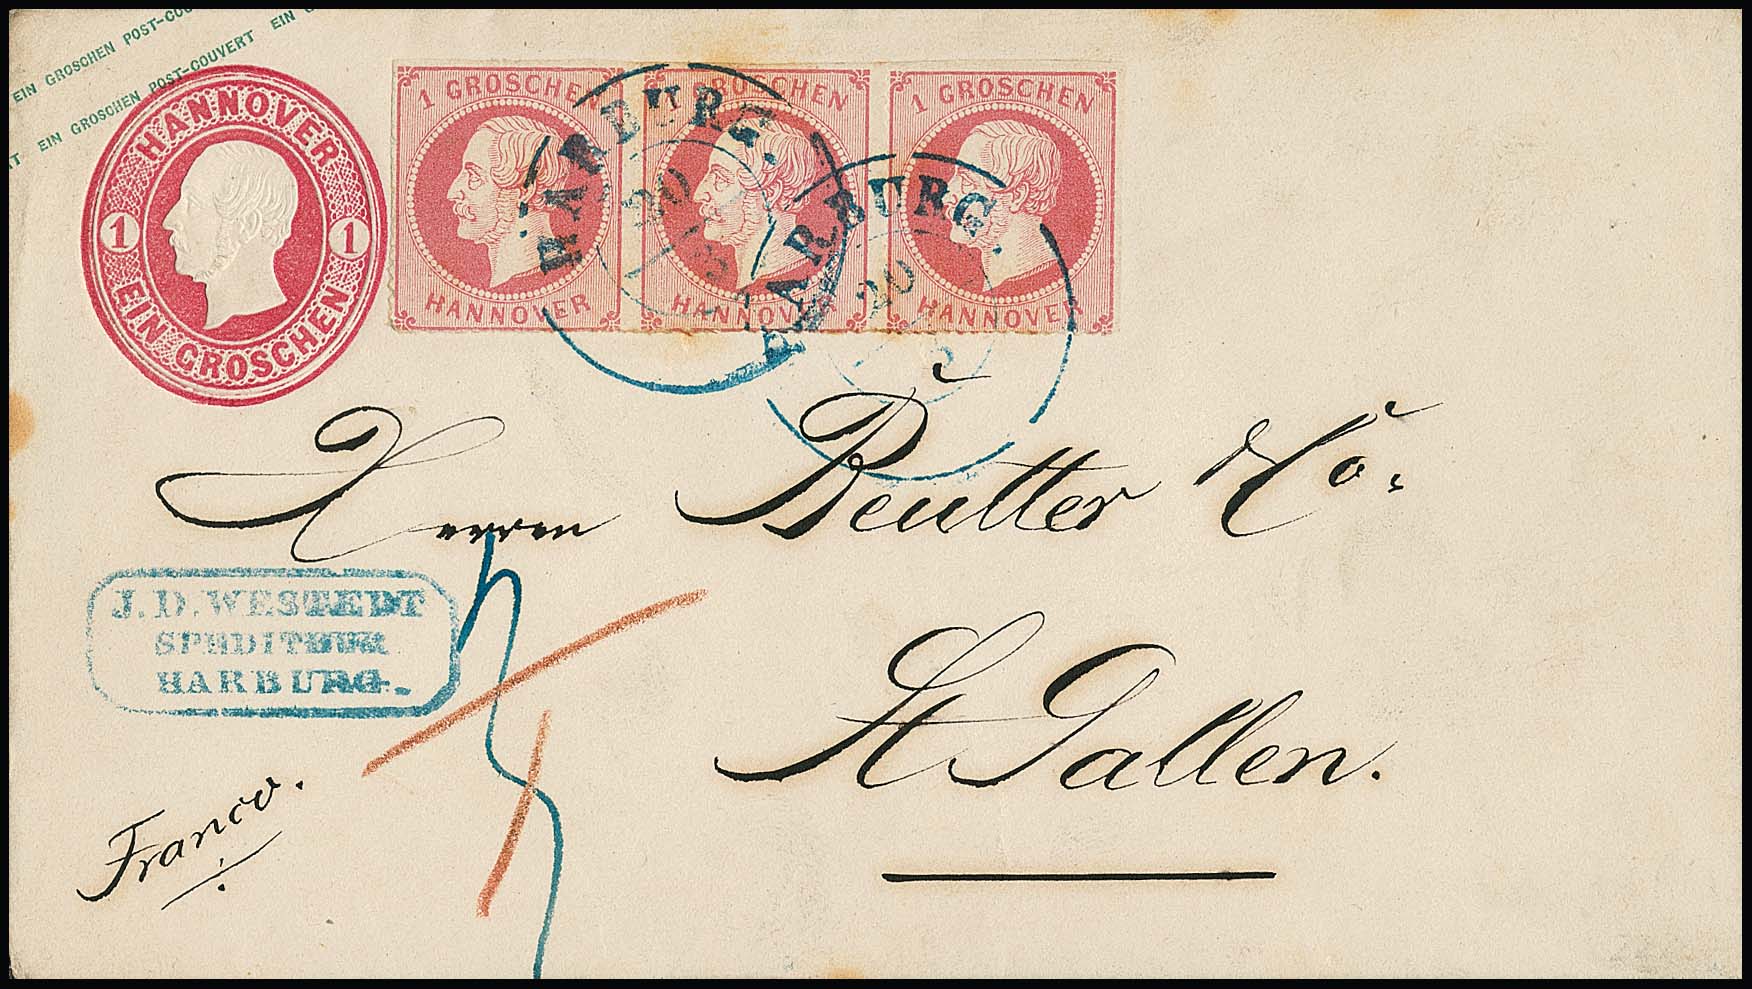 EIN GROSCHEN POST-COU
T EIN GROSCHEN POST-COUVERT EIN G
HANNOVER
1 1
EIN GROSCHEN
1 GROSCHEN
HANNOVER
1 GROSCHEN
HANNOVER
1 GROSCHEN
HANNOVER
HARBURG.
20
3
HARBURG.
20
3
Herren Beutter & Co.
J. D. WESTEDT
SPEDITEUR
HARBURG.
St Gallen.
Franco.